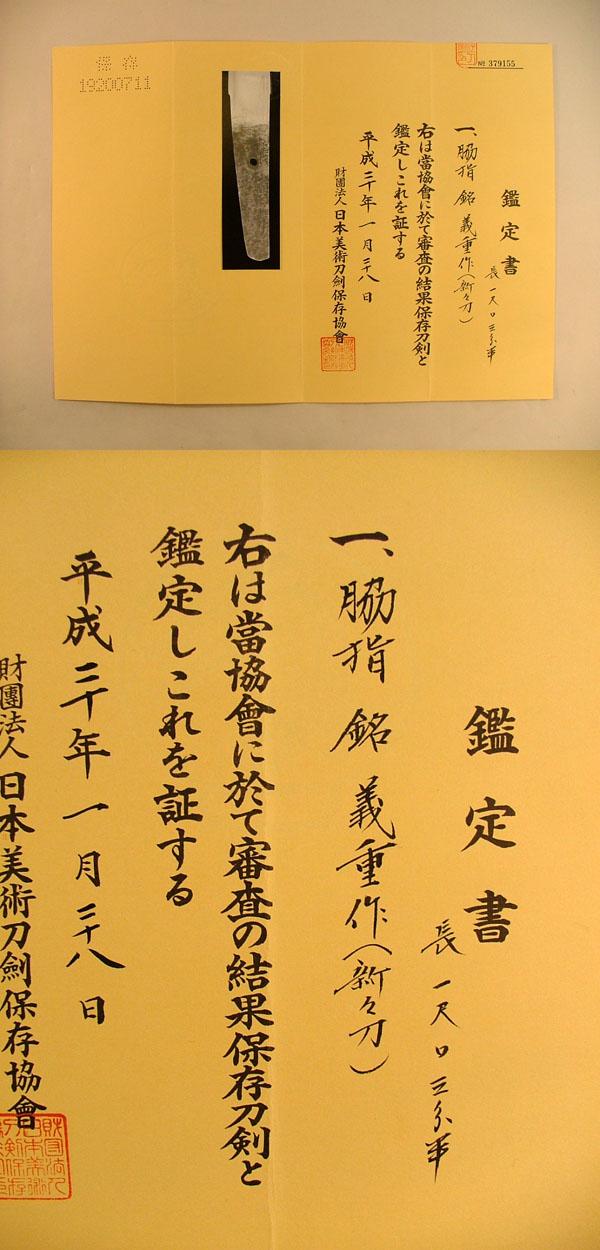 保存
19200711
№ 379155
鑑定書
一、脇指 銘 義重作（新々刀）
長 一尺〇三分半
右は當協會に於て審査の結果保存刀剣と
鑑定しこれを証する
平成二十年一月二十八日
財團法人日本美術刀劍保存協會
鑑定書
長 一尺〇三分半
一、脇指 銘 義重作（新々刀）
右は當協會に於て審査の結果保存刀剣と
鑑定しこれを証する
平成二十年一月二十八日
財團法人日本美術刀劍保存協會